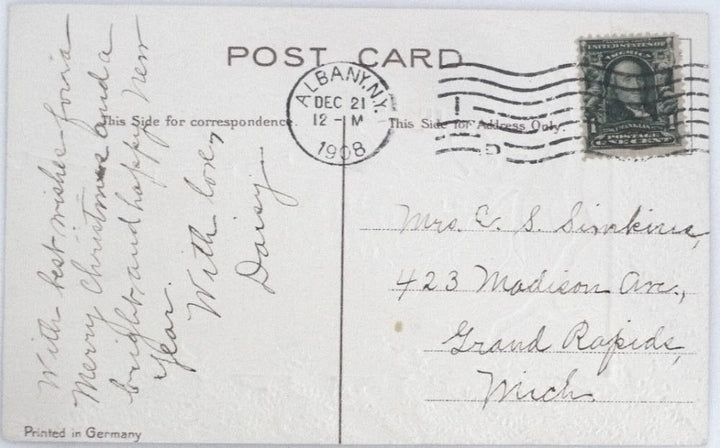 POST CARD
This Side for correspondence.
This Side for Address Only.
ALBANY, N.Y.
DEC 21
12 - M
1908
1
D
UNITED STATES OF AMERICA
FRANKLIN
1 POSTAGE 1
ONE CENT
With best wishes for a
Merry Christmas and a
bright and happy New
Year.
With love,
Daisy.
Mrs. E. S. Simkins,
423 Madison Ave.,
Grand Rapids,
Mich.
Printed in Germany